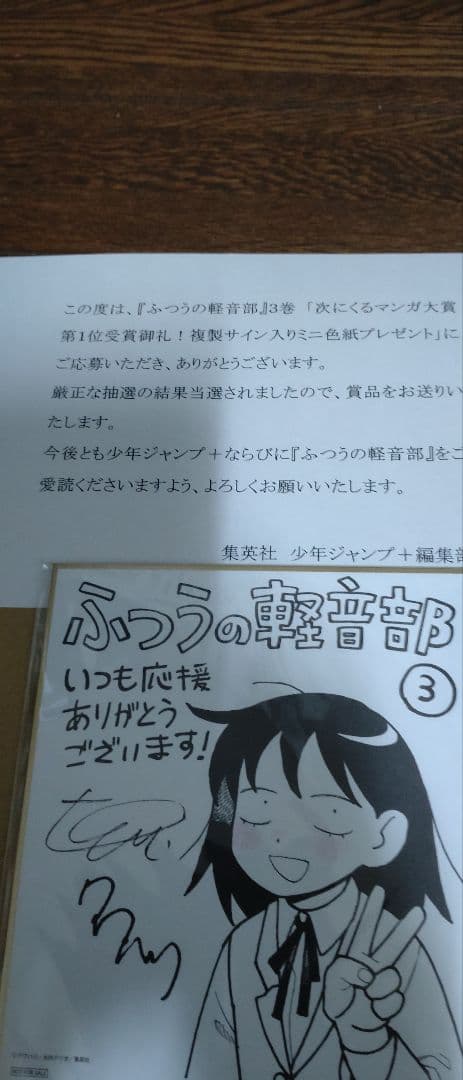 この度は、『ふつうの軽音部』3巻 「次にくるマンガ大賞
第1位受賞御礼！複製サイン入りミニ色紙プレゼント」に
ご応募いただき、ありがとうございます。
厳正な抽選の結果当選されましたので、賞品をお送りい
たします。
今後とも少年ジャンプ＋ならびに『ふつうの軽音部』をご
愛読くださいますよう、よろしくお願いいたします。
集英社 少年ジャンプ＋編集部
ふつうの軽音部
③
いつも応援
ありがとう
ございます!
NOT FOR SALE